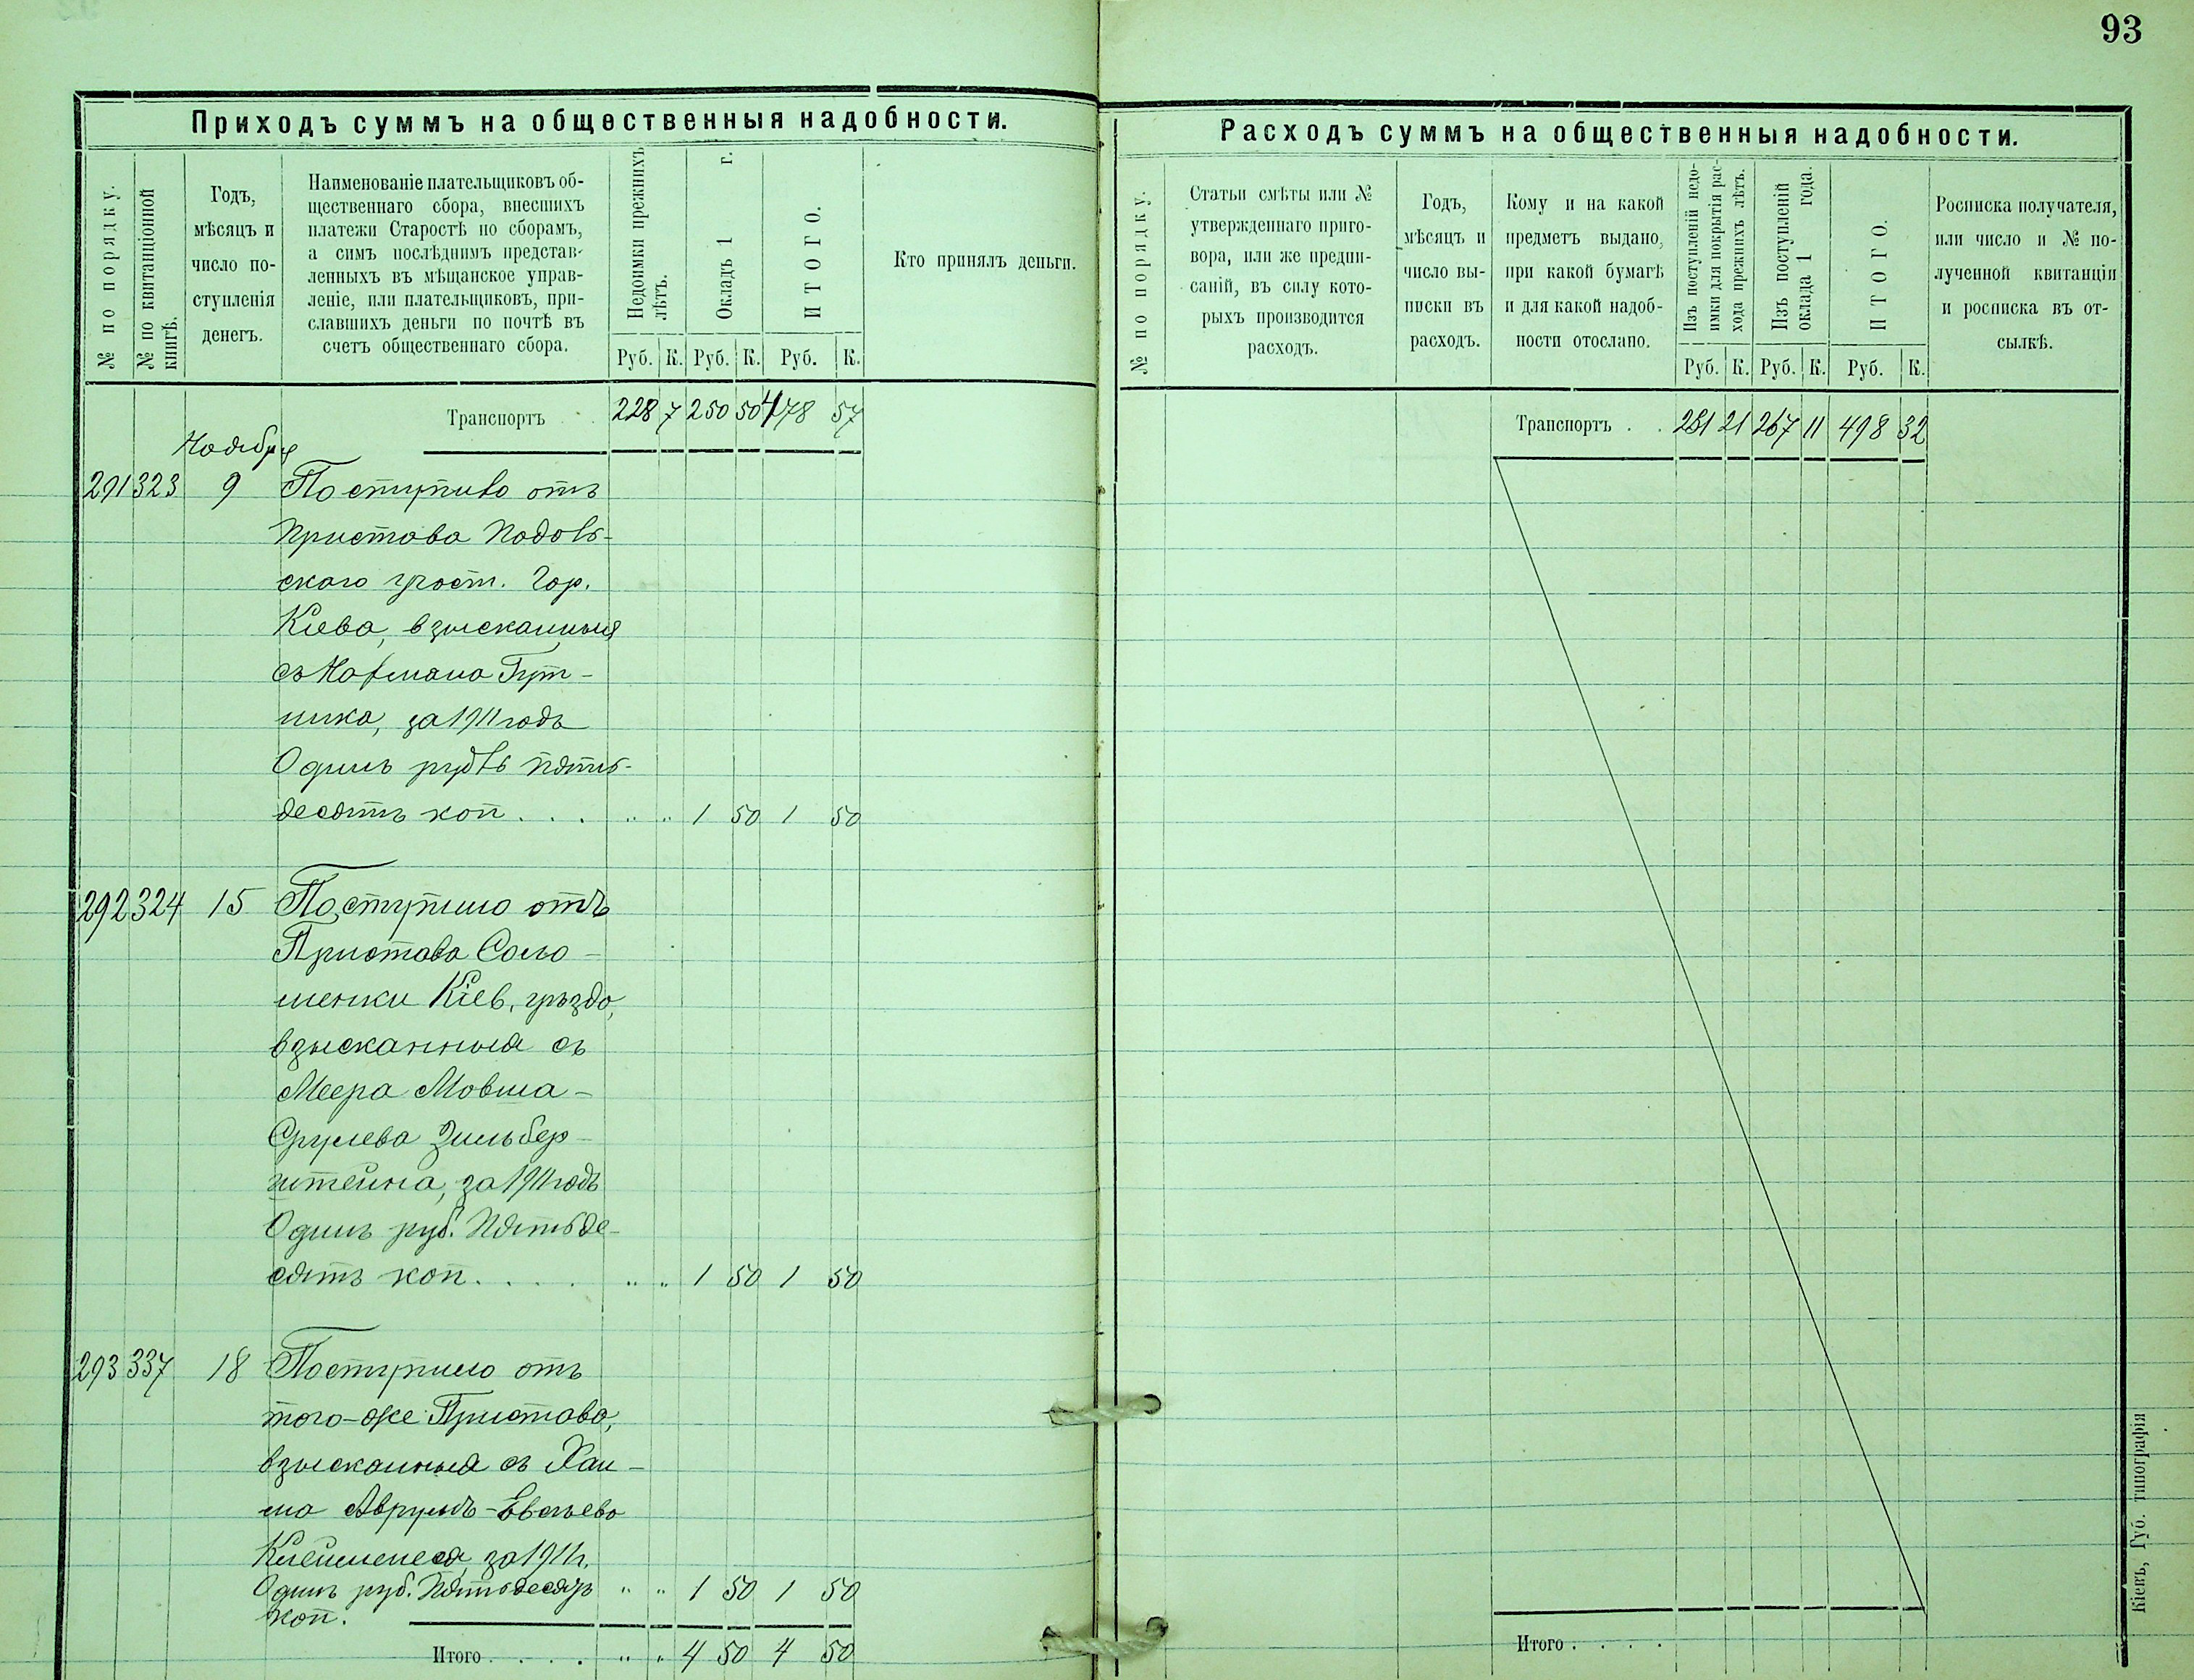 93
Приходъ суммъ на общественныя надобности.
№ по порядку.
№ по квитанціонной
книгѣ.
Годъ,
мѣсяцъ и
число по-
ступленія
денегъ.
Наименованіе плательщиковъ об-
щественнаго сбора, внесшихъ
платежи Старостѣ по сборамъ,
а симъ послѣднимъ представ-
ленныхъ въ мѣщанское управ-
леніе, или плательщиковъ, при-
славшихъ деньги по почтѣ въ
счетъ общественнаго сбора.
Недоимки прежнихъ
лѣтъ.
Окладъ 1 г.
ИТОГО.
Кто принялъ деньги.
Руб. К. Руб. К. Руб. К.
Транспортъ 228 7 250 50 478 57
Ноября
291 323 9 Поступило отъ
Пристава Подоль-
скаго участ. Гор.
Кіева, взысканныя
съ Нафмана Гут-
ника, за 1911 годъ
Одинъ рубль пять-
десятъ коп. . . „ „ 1 50 1 50
292 324 15 Поступило отъ
Пристава Соло-
менки Кіев. уѣзда,
взысканныя съ
Меера Мовша-
Срулева Зильбер-
штейна, за 1911 годъ
Одинъ руб. Пятьде-
сятъ коп. . . . „ „ 1 50 1 50
293 337 18 Поступило отъ
того-же Пристава,
взысканныя съ Хаи-
ма Аврумъ-
за 1911 г.
Одинъ руб. Пятьдесятъ „ „ 1 50 1 50
коп.
Итого . . . . „ „ 4 50 4 50
Расходъ суммъ на общественныя надобности.
№ по порядку.
Статьи смѣты или №
утвержденнаго приго-
вора, или же предпи-
саній, въ силу кото-
рыхъ производится
расходъ.
Годъ,
мѣсяцъ и
число вы-
писки въ
расходъ.
Кому и на какой
предметъ выдано,
при какой бумагѣ
и для какой надоб-
ности отослано.
Изъ поступленій недо-
имки для покрытія рас-
хода прежнихъ лѣтъ.
Изъ поступленій
оклада 1 года.
ИТОГО.
Росписка получателя,
или число и № по-
лученной квитанціи
и росписка въ от-
сылкѣ.
Руб. К. Руб. К. Руб. К.
Транспортъ . . 231 21 267 11 498 32
Итого . . . .
Кіевъ, Губ. типографія